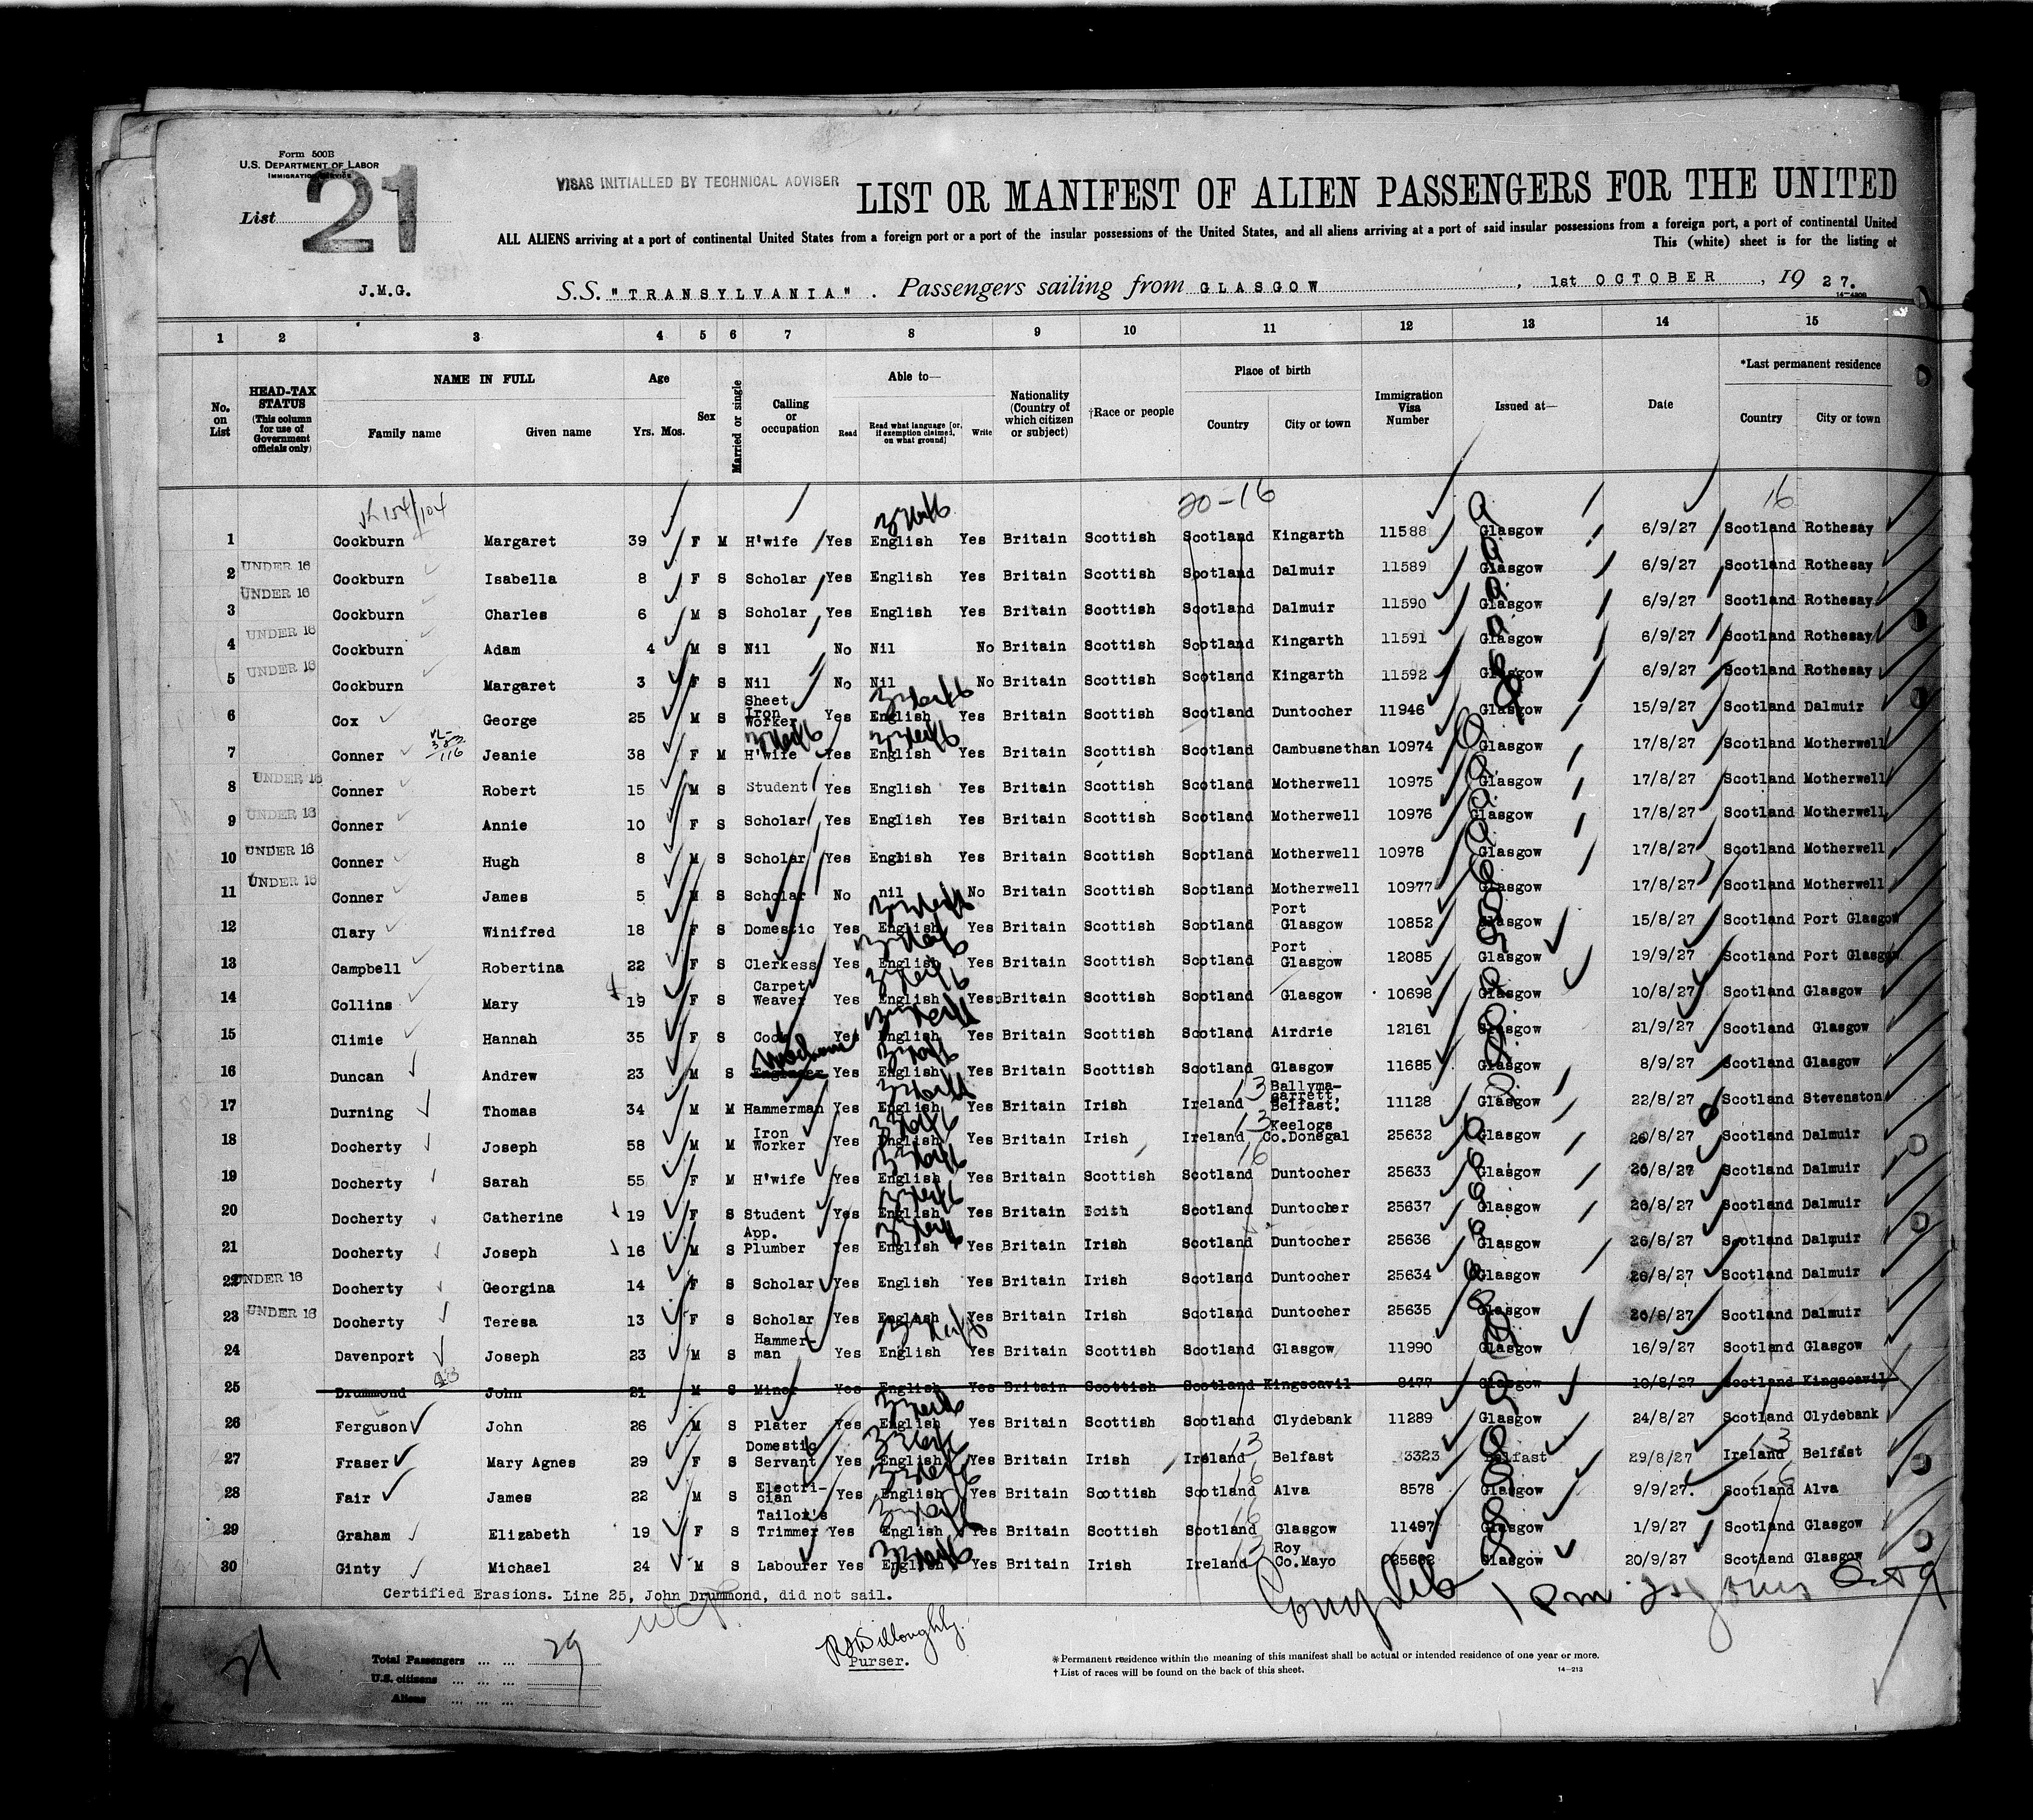 Form 500B
U.S. DEPARTMENT OF LABOR
IMMIGRATION SERVICE
List 21
VISAS INITIALLED BY TECHNICAL ADVISER
LIST OR MANIFEST OF ALIEN PASSENGERS FOR THE UNITED
ALL ALIENS arriving at a port of continental United States from a foreign port or a port of the insular possessions of the United States, and all aliens arriving at a port of said insular possessions from a foreign port, a port of continental United
This (white) sheet is for the listing of
J.M.G. S.S. "TRANSYLVANIA". Passengers sailing from GLASGOW, 1st OCTOBER, 1927.
14-4202
1 2 3 4 5 6 7 8 9 10 11 12 13 14 15
No. on List HEAD-TAX STATUS (This column for use of Government officials only) NAME IN FULL Family name Given name Age Yrs. Mos. Sex Married or single Calling or occupation Able to— Read Read what language [or, if exemption claimed, on what ground] Write Nationality (Country of which citizen or subject) †Race or people Place of birth Country City or town Immigration Visa Number Issued at— Date *Last permanent residence Country City or town
20-16 16
1 Cockburn Margaret 39 F M H'wife Yes English Yes Britain Scottish Scotland Kingarth 11588 Glasgow 6/9/27 Scotland Rothesay
2 UNDER 16 Cockburn Isabella 8 F S Scholar Yes English Yes Britain Scottish Scotland Dalmuir 11589 Glasgow 6/9/27 Scotland Rothesay
3 UNDER 16 Cockburn Charles 6 M S Scholar Yes English Yes Britain Scottish Scotland Dalmuir 11590 Glasgow 6/9/27 Scotland Rothesay
4 UNDER 16 Cockburn Adam 4 M S Nil No Nil No Britain Scottish Scotland Kingarth 11591 Glasgow 6/9/27 Scotland Rothesay
5 UNDER 16 Cockburn Margaret 3 F S Nil No Nil No Britain Scottish Scotland Kingarth 11592 Glasgow 6/9/27 Scotland Rothesay
6 Cox George 25 M S Sheet Iron Worker Yes English Yes Britain Scottish Scotland Duntocher 11946 Glasgow 15/9/27 Scotland Dalmuir
7 Conner Jeanie 38 F M H'wife Yes English Yes Britain Scottish Scotland Cambusnethan 10974 Glasgow 17/8/27 Scotland Motherwell
8 UNDER 16 Conner Robert 15 M S Student Yes English Yes Britain Scottish Scotland Motherwell 10975 Glasgow 17/8/27 Scotland Motherwell
9 UNDER 16 Conner Annie 10 F S Scholar Yes English Yes Britain Scottish Scotland Motherwell 10976 Glasgow 17/8/27 Scotland Motherwell
10 UNDER 16 Conner Hugh 8 M S Scholar Yes English Yes Britain Scottish Scotland Motherwell 10978 Glasgow 17/8/27 Scotland Motherwell
11 UNDER 16 Conner James 5 M S Scholar No nil No Britain Scottish Scotland Motherwell 10977 Glasgow 17/8/27 Scotland Motherwell
12 Clary Winifred 18 F S Domestic Yes English Yes Britain Scottish Scotland Port Glasgow 10852 Glasgow 15/8/27 Scotland Port Glasgow
13 Campbell Robertina 22 F S Clerkess Yes English Yes Britain Scottish Scotland Port Glasgow 12085 Glasgow 19/9/27 Scotland Port Glasgow
14 Collins Mary 19 F S Carpet Weaver Yes English Yes Britain Scottish Scotland Glasgow 10698 Glasgow 10/8/27 Scotland Glasgow
15 Climie Hannah 35 F S Cook Yes English Yes Britain Scottish Scotland Airdrie 12161 Glasgow 21/9/27 Scotland Glasgow
16 Duncan Andrew 23 M S Engineer Yes English Yes Britain Scottish Scotland Glasgow 11685 Glasgow 8/9/27 Scotland Glasgow
17 Durning Thomas 34 M M Hammerman Yes English Yes Britain Irish Ireland 13 Ballyma-garrett, Belfast. 11128 Glasgow 22/8/27 Scotland Stevenston
18 Docherty Joseph 58 M M Iron Worker Yes English Yes Britain Irish Ireland 13 Keelogs Co.Donegal 25632 Glasgow 26/8/27 Scotland Dalmuir
19 Docherty Sarah 55 F M H'wife Yes English Yes Britain Scottish Scotland 16 Duntocher 25633 Glasgow 26/8/27 Scotland Dalmuir
20 Docherty Catherine 19 F S Student Yes English Yes Britain Scotland Duntocher 25637 Glasgow 26/8/27 Scotland Dalmuir
21 Docherty Joseph 16 M S App. Plumber Yes English Yes Britain Irish Scotland Duntocher 25636 Glasgow 26/8/27 Scotland Dalmuir
22 UNDER 16 Docherty Georgina 14 F S Scholar Yes English Yes Britain Irish Scotland Duntocher 25634 Glasgow 26/8/27 Scotland Dalmuir
23 UNDER 16 Docherty Teresa 13 F S Scholar Yes English Yes Britain Irish Scotland Duntocher 25635 Glasgow 26/8/27 Scotland Dalmuir
24 Davenport Joseph 23 M S Hammer-man Yes English Yes Britain Scottish Scotland Glasgow 11990 Glasgow 16/9/27 Scotland Glasgow
25 Drummond John 21 M S Miner Yes English Yes Britain Scottish Scotland Kingscavil 9477 Glasgow 10/8/27 Scotland Kingscavil
26 Ferguson John 26 M S Plater Yes English Yes Britain Scottish Scotland Clydebank 11289 Glasgow 24/8/27 Scotland Clydebank
27 Fraser Mary Agnes 29 F S Domestic Servant Yes English Yes Britain Irish Ireland 13 Belfast 3323 Belfast 29/8/27 Ireland 13 Belfast
28 Fair James 22 M S Electri-cian Yes English Yes Britain Scottish Scotland 16 Alva 8578 Glasgow 9/9/27. Scotland 16 Alva
29 Graham Elizabeth 19 F S Tailor's Trimmer Yes English Yes Britain Scottish Scotland 16 Glasgow 11497 Glasgow 1/9/27 Scotland Glasgow
30 Ginty Michael 24 M S Labourer Yes English Yes Britain Irish Ireland 13 Roy Co.Mayo Glasgow 20/9/27 Scotland Glasgow
Certified Erasions. Line 25, John Drummond, did not sail.
21
Total Passengers ... ... 29
U.S. citizens ... ... ...
Aliens ... ... ...
Willoughby.
Purser.
*Permanent residence within the meaning of this manifest shall be actual or intended residence of one year or more.
†List of races will be found on the back of this sheet. 14-213